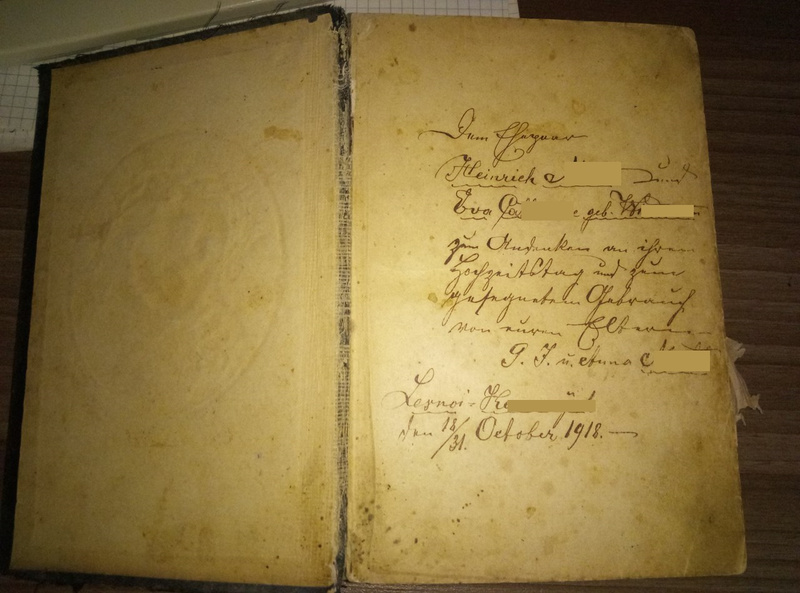 Dem Ehepaar
Heinrich und
Eva geb.
zum Andenken an ihren
Hochzeitstag und zum
gesegneten Gebrauch
von euren Eltern
G. J. u. Anna
den 18/31. October 1918.